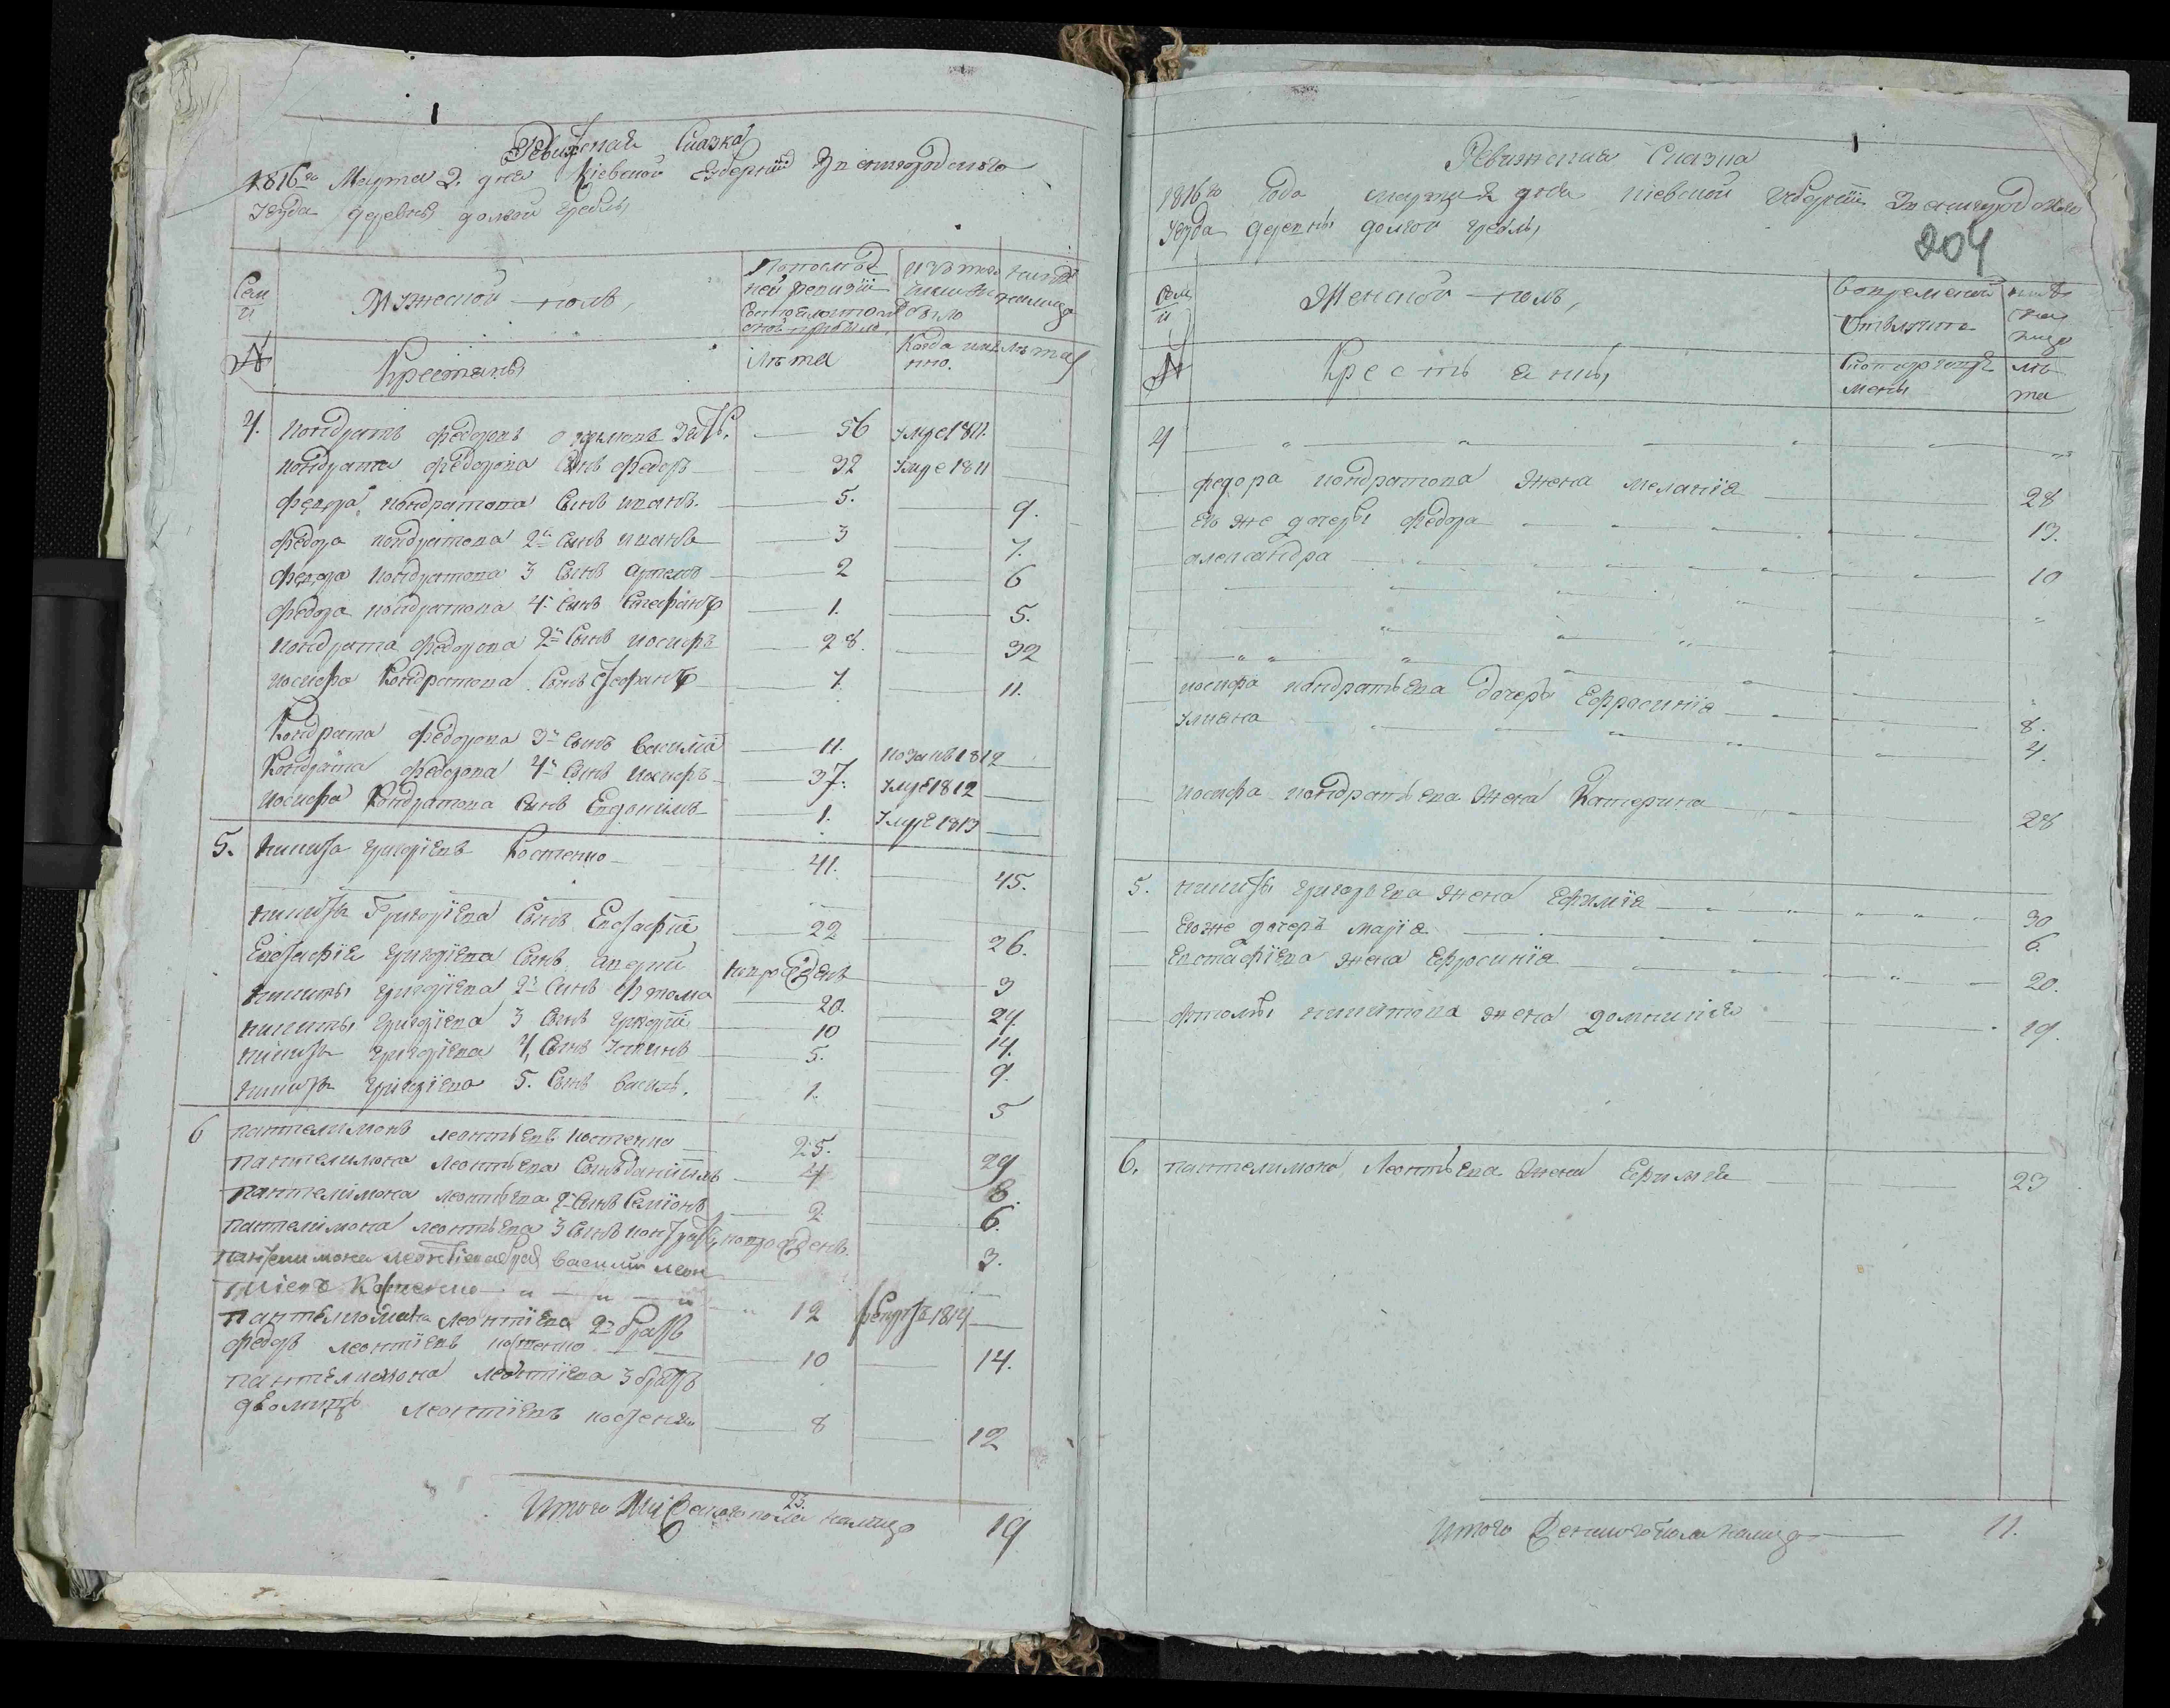 Ревижская Сказка
1816го Марта 2. дня Кіевской Губерніи Звенигородского
уезда деревни долгой гребли,
Сем
и
Мужеской полъ,
Попослед
ней ревизіи
Состояло и после
оной прибыло
изъ того
числа вы
было
ныне
налицо
№
Крестяны
лѣта
Когда имян
но.
лѣта
4. Кондратъ федоровъ 56 умре 1811.
Кондрата федорова Сынъ федоръ 32 умре 1811
федора Кондратова Сынъ иванъ. 5. 9.
федора кондратова 2й Сынъ иванъ 3 7.
федора Кондратова 3 Сынъ артемъ 2 6
федора кондратова 4й Сынъ Стефанъ 1. 5.
Кондрата федорова 2й Сынъ иосифъ 28. 32
иосифа Кондратова Сынъ Стефанъ 7. 11.
Кондрата федорова 3й Сынъ василій 11. 1812
Кондрата федорова 4й Сынъ иосифъ 37. умре 1812
иосифа Кондратова Сынъ Евдокимъ 1. умре 1813
5. Никита григоріевъ Костенко 41. 45.
Никиты Григоріева Сынъ Евстафій 22 26.
Евстафія григоріева Сынъ андрий новорожденъ 3
Никиты григоріева 2й Сынъ фтома 20. 24.
Никиты григоріева 3 Сынъ григорій 10 14.
Никиты григоріева 4, Сынъ устинъ 5. 9.
Никиты григоріева 5. Сынъ василь. 1. 5
6 пантелимонъ леонтьевъ костенко 25. 29
пантелимона леонтьева Сынъ даниилъ 4 8.
пантелимона леонтьева 2 Сынъ Семіонъ 2 6.
пантелимона леонтьева 3 Сынъ кондратъ новорожденъ. 3.
пантелимона леонтіева братъ василий леон
тіевъ Костенко 12 рекрутъ 1814
пантелимона леонтіева 2й братъ
федоръ леонтіевъ костенко 10 14.
пантелимона леонтіева 3 братъ
леонтіевъ костенко 8 12
23.
Итого Мужеского пола налицо 19
Ревижская Сказка
1816го года марта 2 дня кіевской губерніи Звенигородского
уезда деревни долгой гребли,
204
Сем
и
Женской полъ,
Вовременной
Отлучке
ныне
налицо
№
Крестьяны,
Скоторого вре
мени
лѣ
та
4
федора кондратова жена меланія 28
Его же дочеры федора 13.
александра 10
иосифа кондратьева дочеры Ефросинія 8.
уляна 4.
иосифа кондратьева жена Катерина 28
5. никиты григорьева жена Ефимія 30
Егоже дочеръ марія 6.
Евстафіева жена Ефросинія 20.
фтомы никитова жена домникія 19.
6. пантелимона Леонтьева жена Ефимія 23
Итого Женского пола налицо 11.